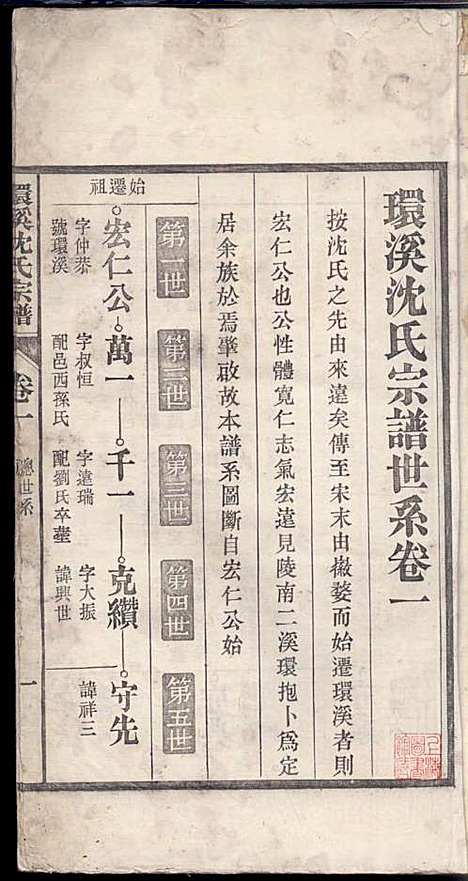 環溪沈氏宗譜世系卷一
按沈氏之先由來遠矣傳至宋末由徽婺而始遷環溪者則
宏仁公也公性體寬仁志氣宏遠見陵南二溪環抱卜爲定
居余族於焉肇啟故本譜系圖斷自宏仁公始
第一世
第二世
第三世
第四世
第五世
始遷祖
宏仁公
萬一
千一
克纘
守先
字仲恭
號環溪
字叔恒
配邑西孫氏
字遠瑞
配劉氏卒塟
字大振
諱興世
諱祥三
環溪沈氏宗譜
卷一
總世系
一